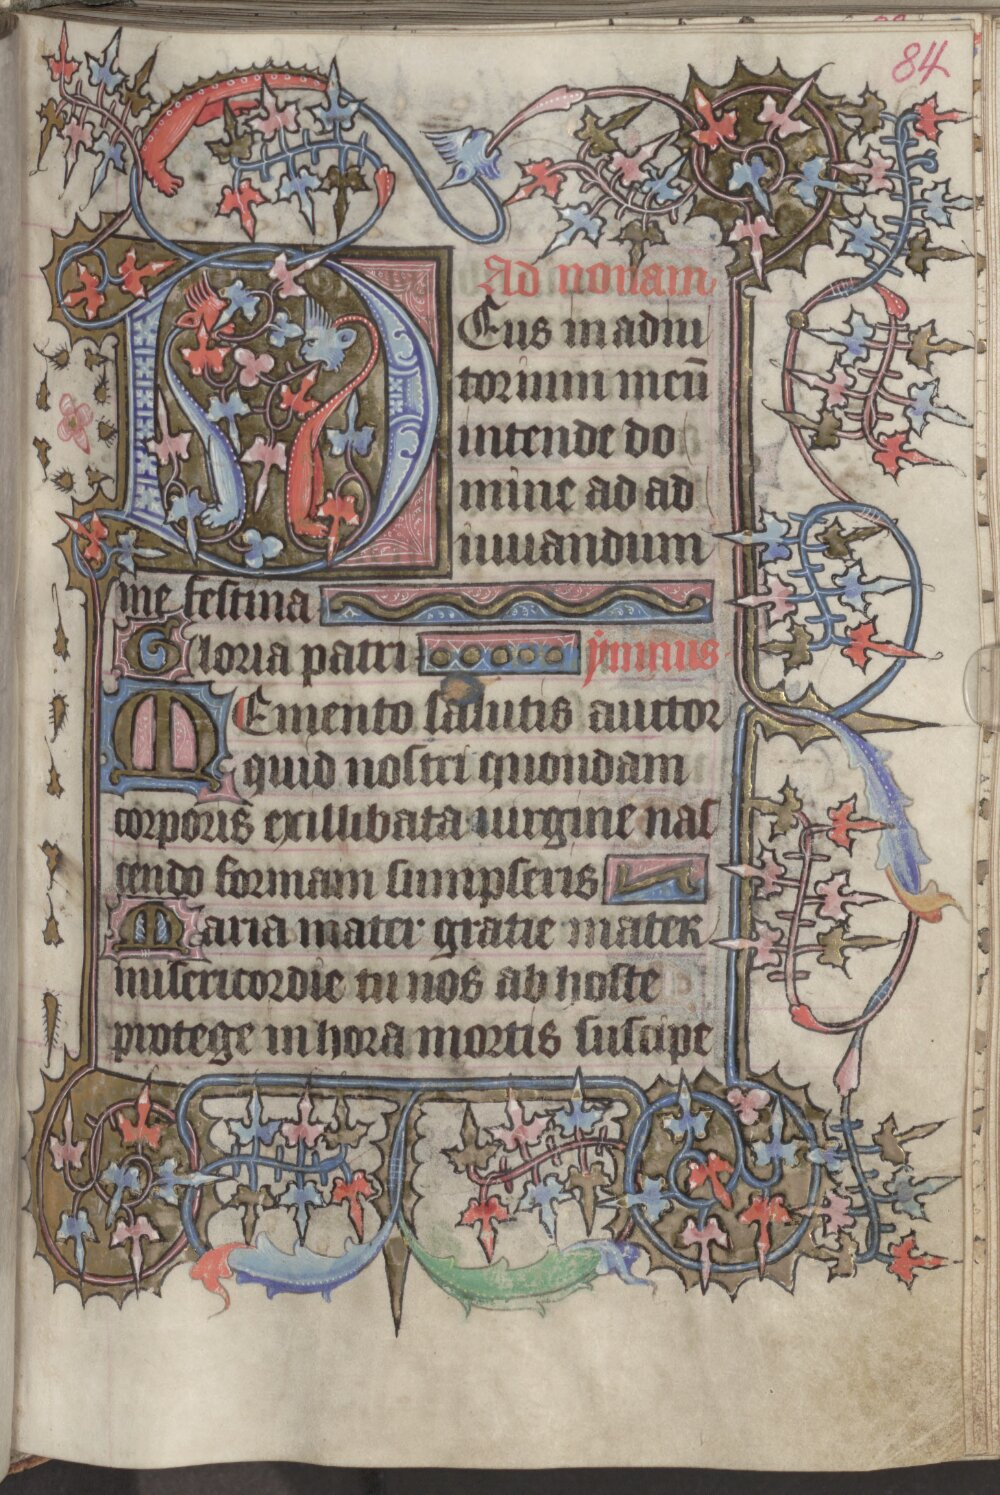 84
Ad nonam
Deus in adiu
torium meū
intende do
mine ad ad
iuuandum
me festina
Gloria patri ẏmnus
Memento salutis auctor
quid nostri quondam
corporis exillibata uirgine nas
cendo formam sumpseris
Maria mater gratie mater
misericordie tu nos ab hoste
protege in hora mortis suscipe